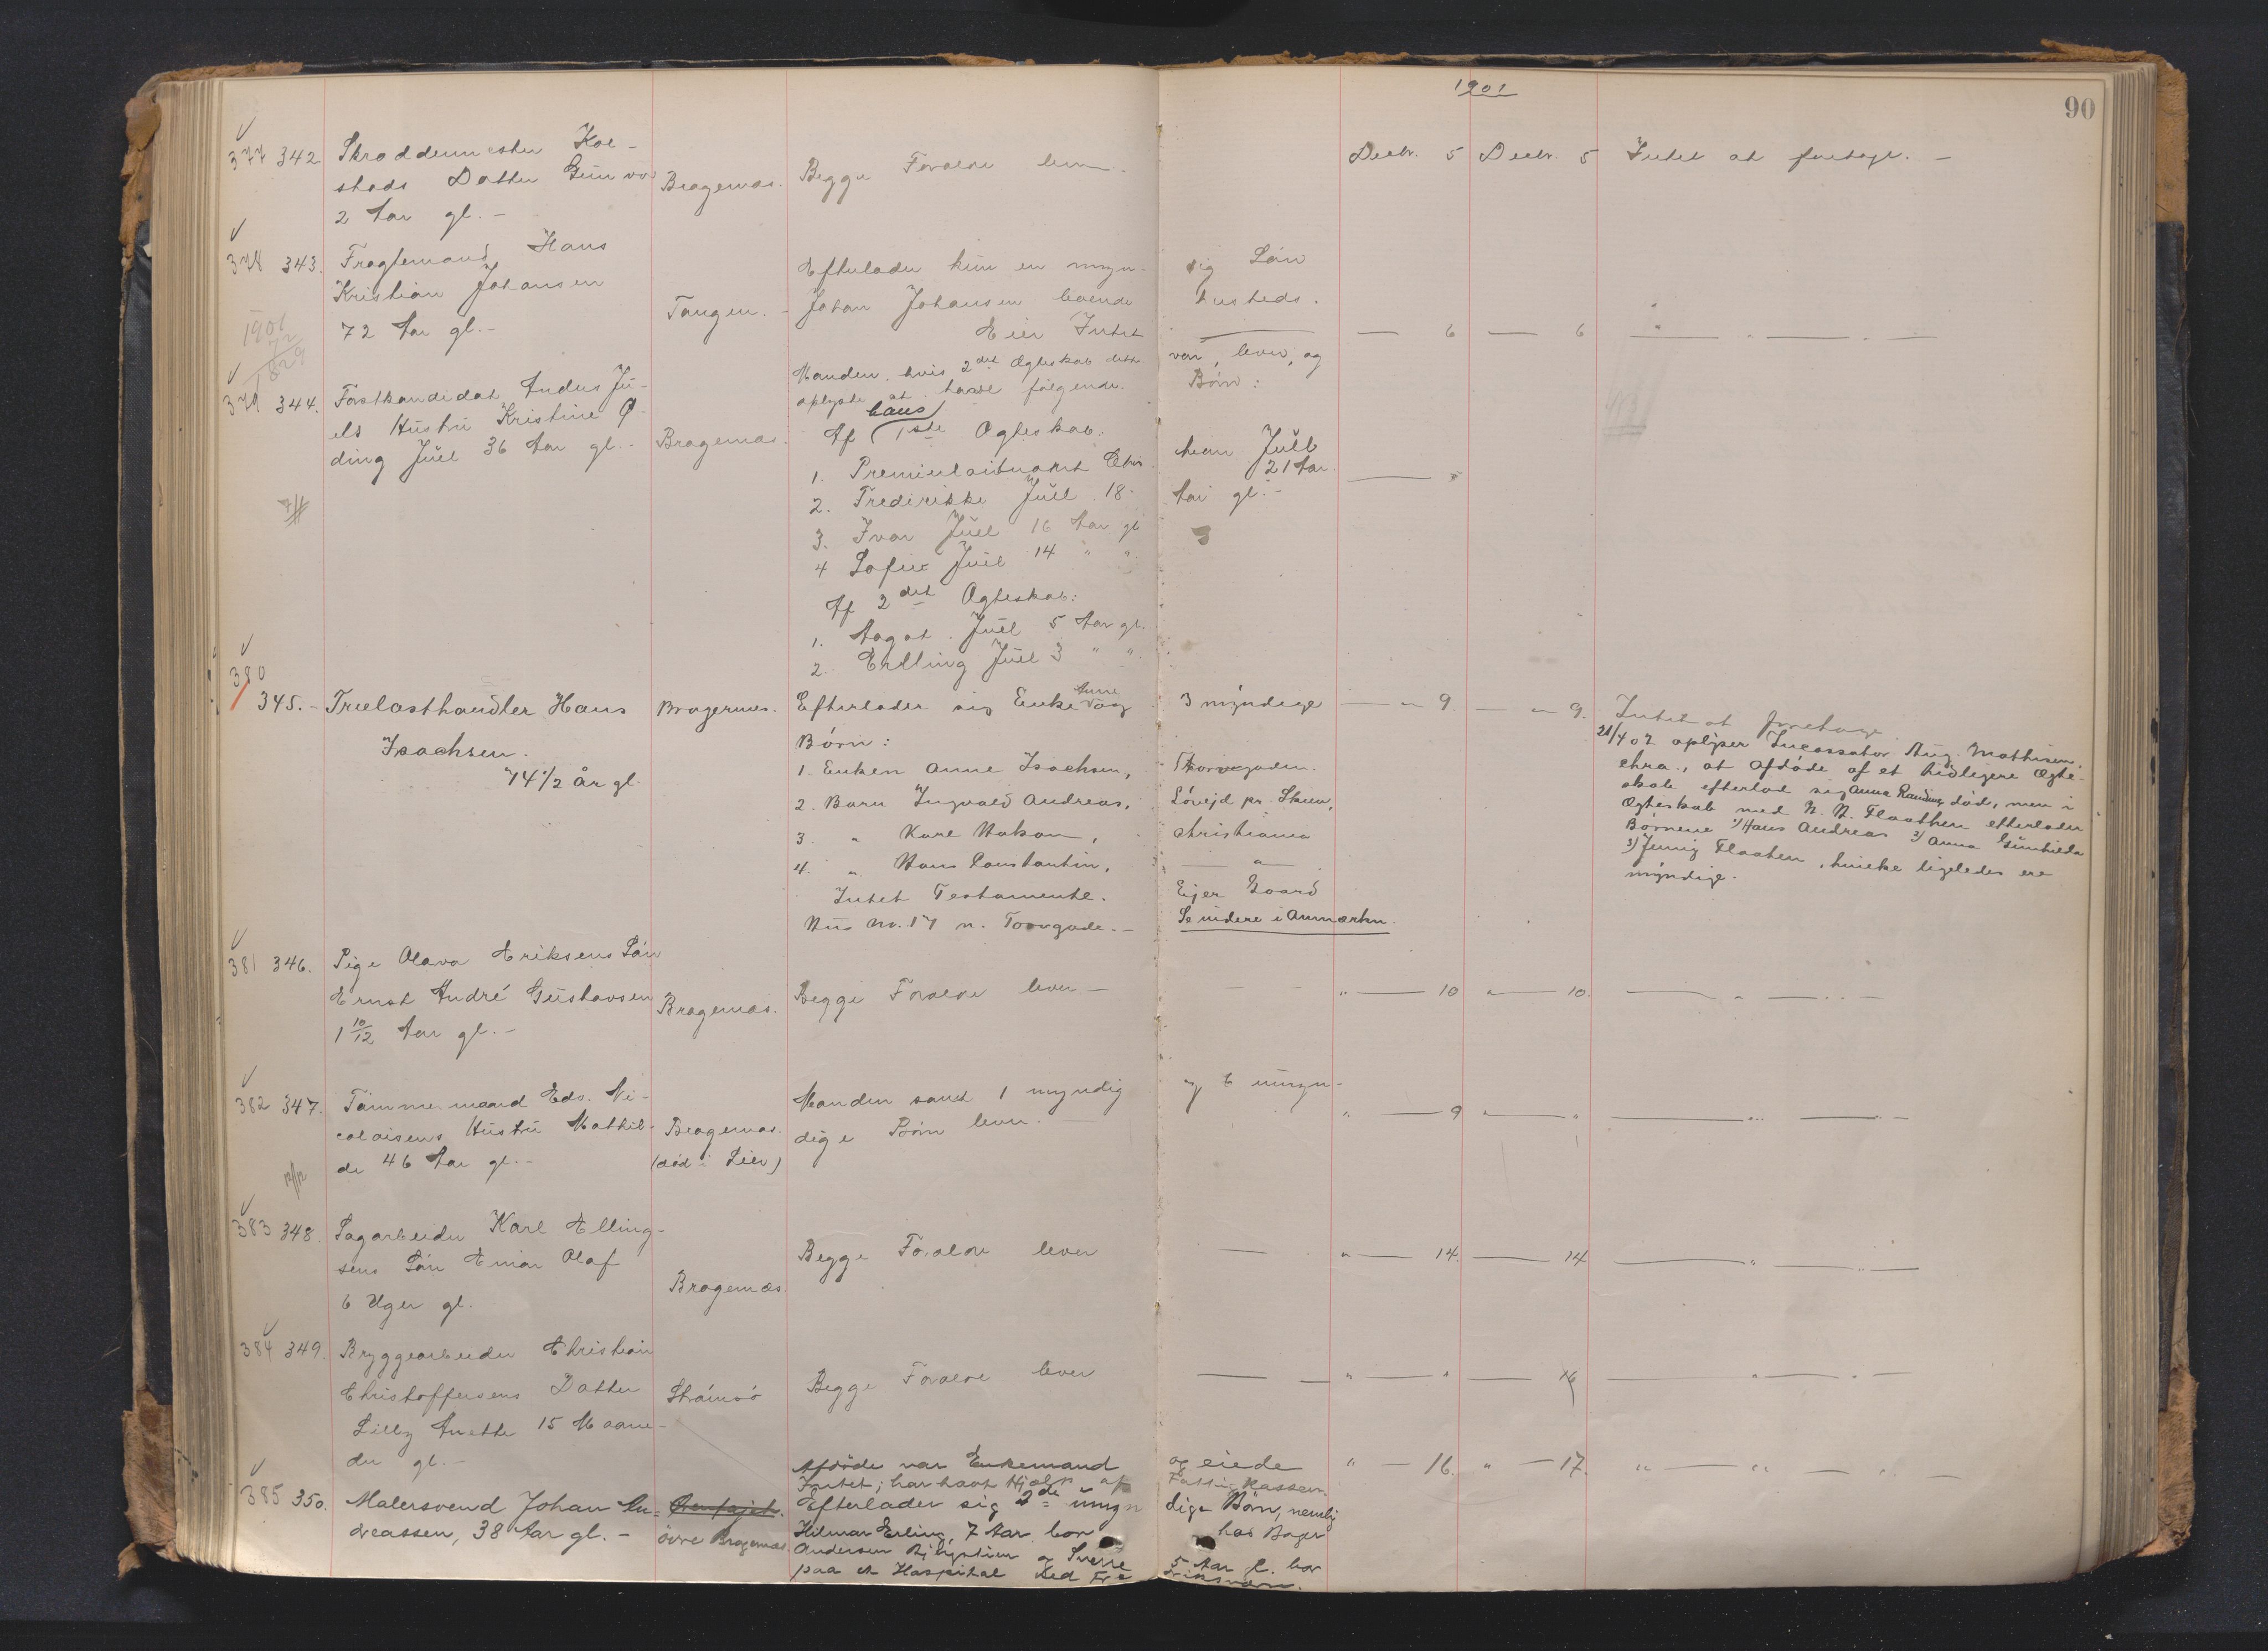 1901
90
377 342 Skræddermester Kol-
stads Datter Gunvor Bragernæs. Begge Forældre lever. Decbr. 5 Decbr. 5 Intet at foretage. -
2 Aar gl. -
378 343. Fragtemand Hans
Kristian Johansen Tangen. - Efterlader kun en myn- sig Sön
72 Aar gl. - Johan Johansen boende husteds.
1901
1829
Eier Intet — 6 — 6 — " — " —
379 344. Forstkandidat Anders Ju-
els Hustru Kristine Ø-
ding Juel 36 Aar gl. - Bragernæs.
Manden, hvis 2det Ægteskab dette var, lever, og
oplyste at have følgende Börn:
hans
Af 1ste Ægteskab:
1. Premierløitnant Chri- stian Juell
21 Aar.
2. Fredrikke Juel 18- Aar gl. -
3. Ivar Juel 16 Aar gl
4 Sofie Juel 14 " "
Af 2det Ægteskab:
1. Aagot Juel 5 Aar gl.
2. Erlling Juel 3 " "
380
345. - Trælasthandler Hans Bragernæs. Efterlader sig Enke Anne og 3 myndige — " 9. — " 9. Intet at foretage.
Isachsen.
74 1/2 År gl.
Börn:
1. Enken Anne Isachsen, Torvegaden.
2. Barn Ingvald Andreas, pr. Skien,
3. " Karl Hakon, Christiania
4. " Hans Constantin, — " —
Intet Testamente. Ejer Gaard
Hus No. 17 n. Torvgade. - Se videre i Anmærkn.
21/4 07 oplyser Incassator Aug. Mathisen,
Chra., at Afdöde af et tidligere Ægte-
skab efterlod sig Anna Randine, död, men i
Ægteskab med N. N. Flaathen efterlader
Börnene 1) Hans Andreas 2) Anna Gunhilda
3) Jenny Flaaten, hvilke ligeledes ere
myndige.
381 346. Pige Olava Eriksens Sön
Ernst André Gustavsen Bragernæs. Begge Forældre lever — — — " — 10 " — 10. — " — " —
1 10/12 Aar gl. -
382 347. Tømmermand Edv. Ni-
colaisens Hustru Mathil- Bragernæs.
de 46 Aar gl. - (död i Lier)
Manden samt 1 myndig og 6 umyn-
dige Börn lever. — " — 9 " — " — " — —
383 348. Sagarbeider Karl Elling-
sens Sön Einar Olaf Bragernæs Begge Forældre lever — " — 14. — 14 — " — " —
6 Uger gl.
384 349. Bryggearbeider Christian
Christoffersens Datter Strömsö Begge Forældre lever — — " — " — 16 — " — " —
Lilly Anette 15 Maane-
der gl. -
385 350. Malersvend Johan An-
dreassen, 38 Aar gl. - övre Bragernæs.
Afdöde var Enkemand og eiede " — 16. " — 17. " — " — " —
Intet; har havt Hjælp af Fattigkassen.
Efterlader sig 2de umyn dige Börn, nemlig
Hilmar Erling, 7 Aar, bor hos Bager
Andersen og Sverre 5 Aar gl. bor
paa et Hospital ved Fre driksværn.